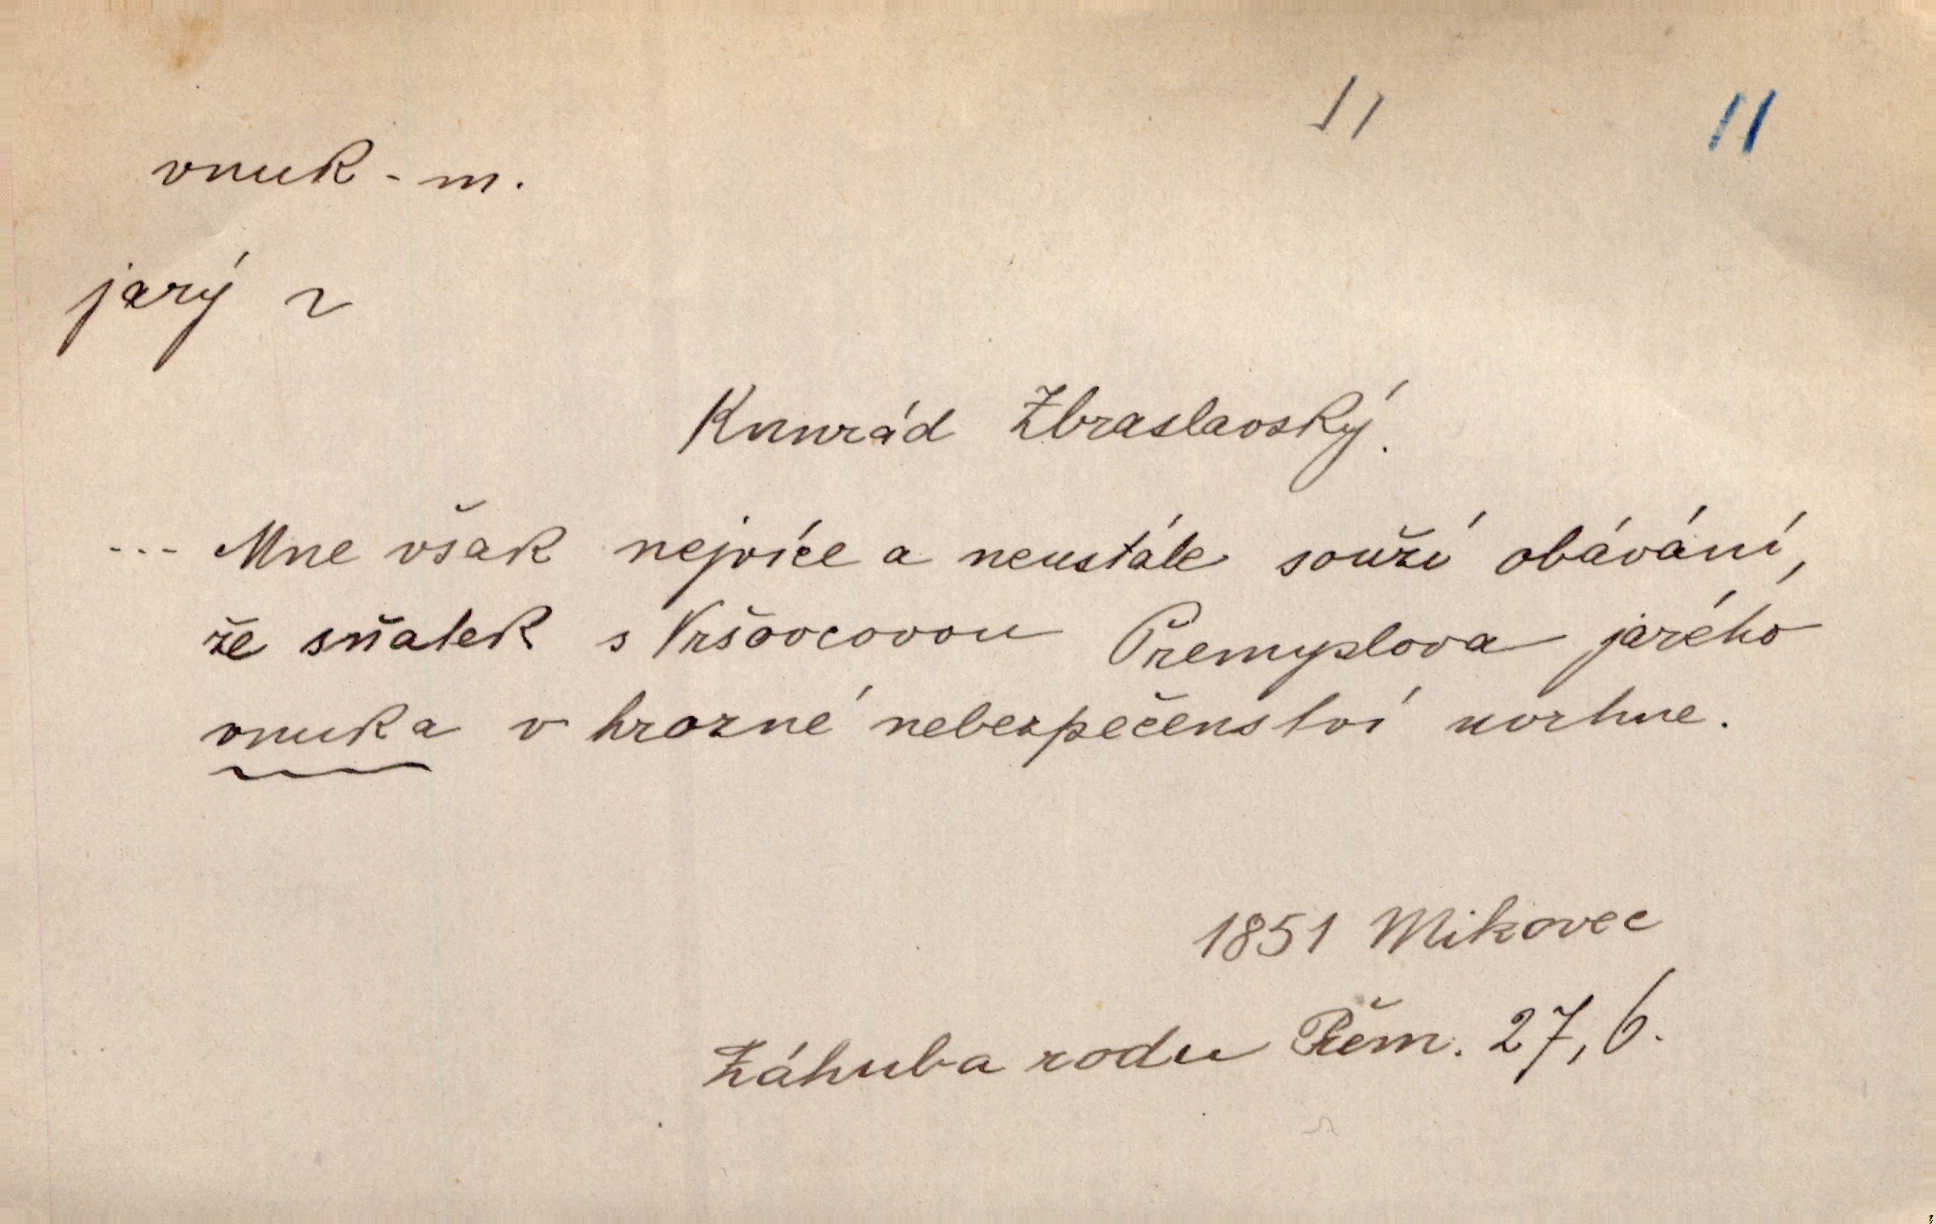 11 11
vnuk - m.
jarý ~
Kunrád Zbraslavský.
--- Mne však nejvíce a neustále souží obávání,
že sňatek s Vršovcovou Přemyslova jarého
vnuka v hrozné nebezpečenství uvrhne.
1851 Mikovec
Záhuba rodu Přem. 27, 6.